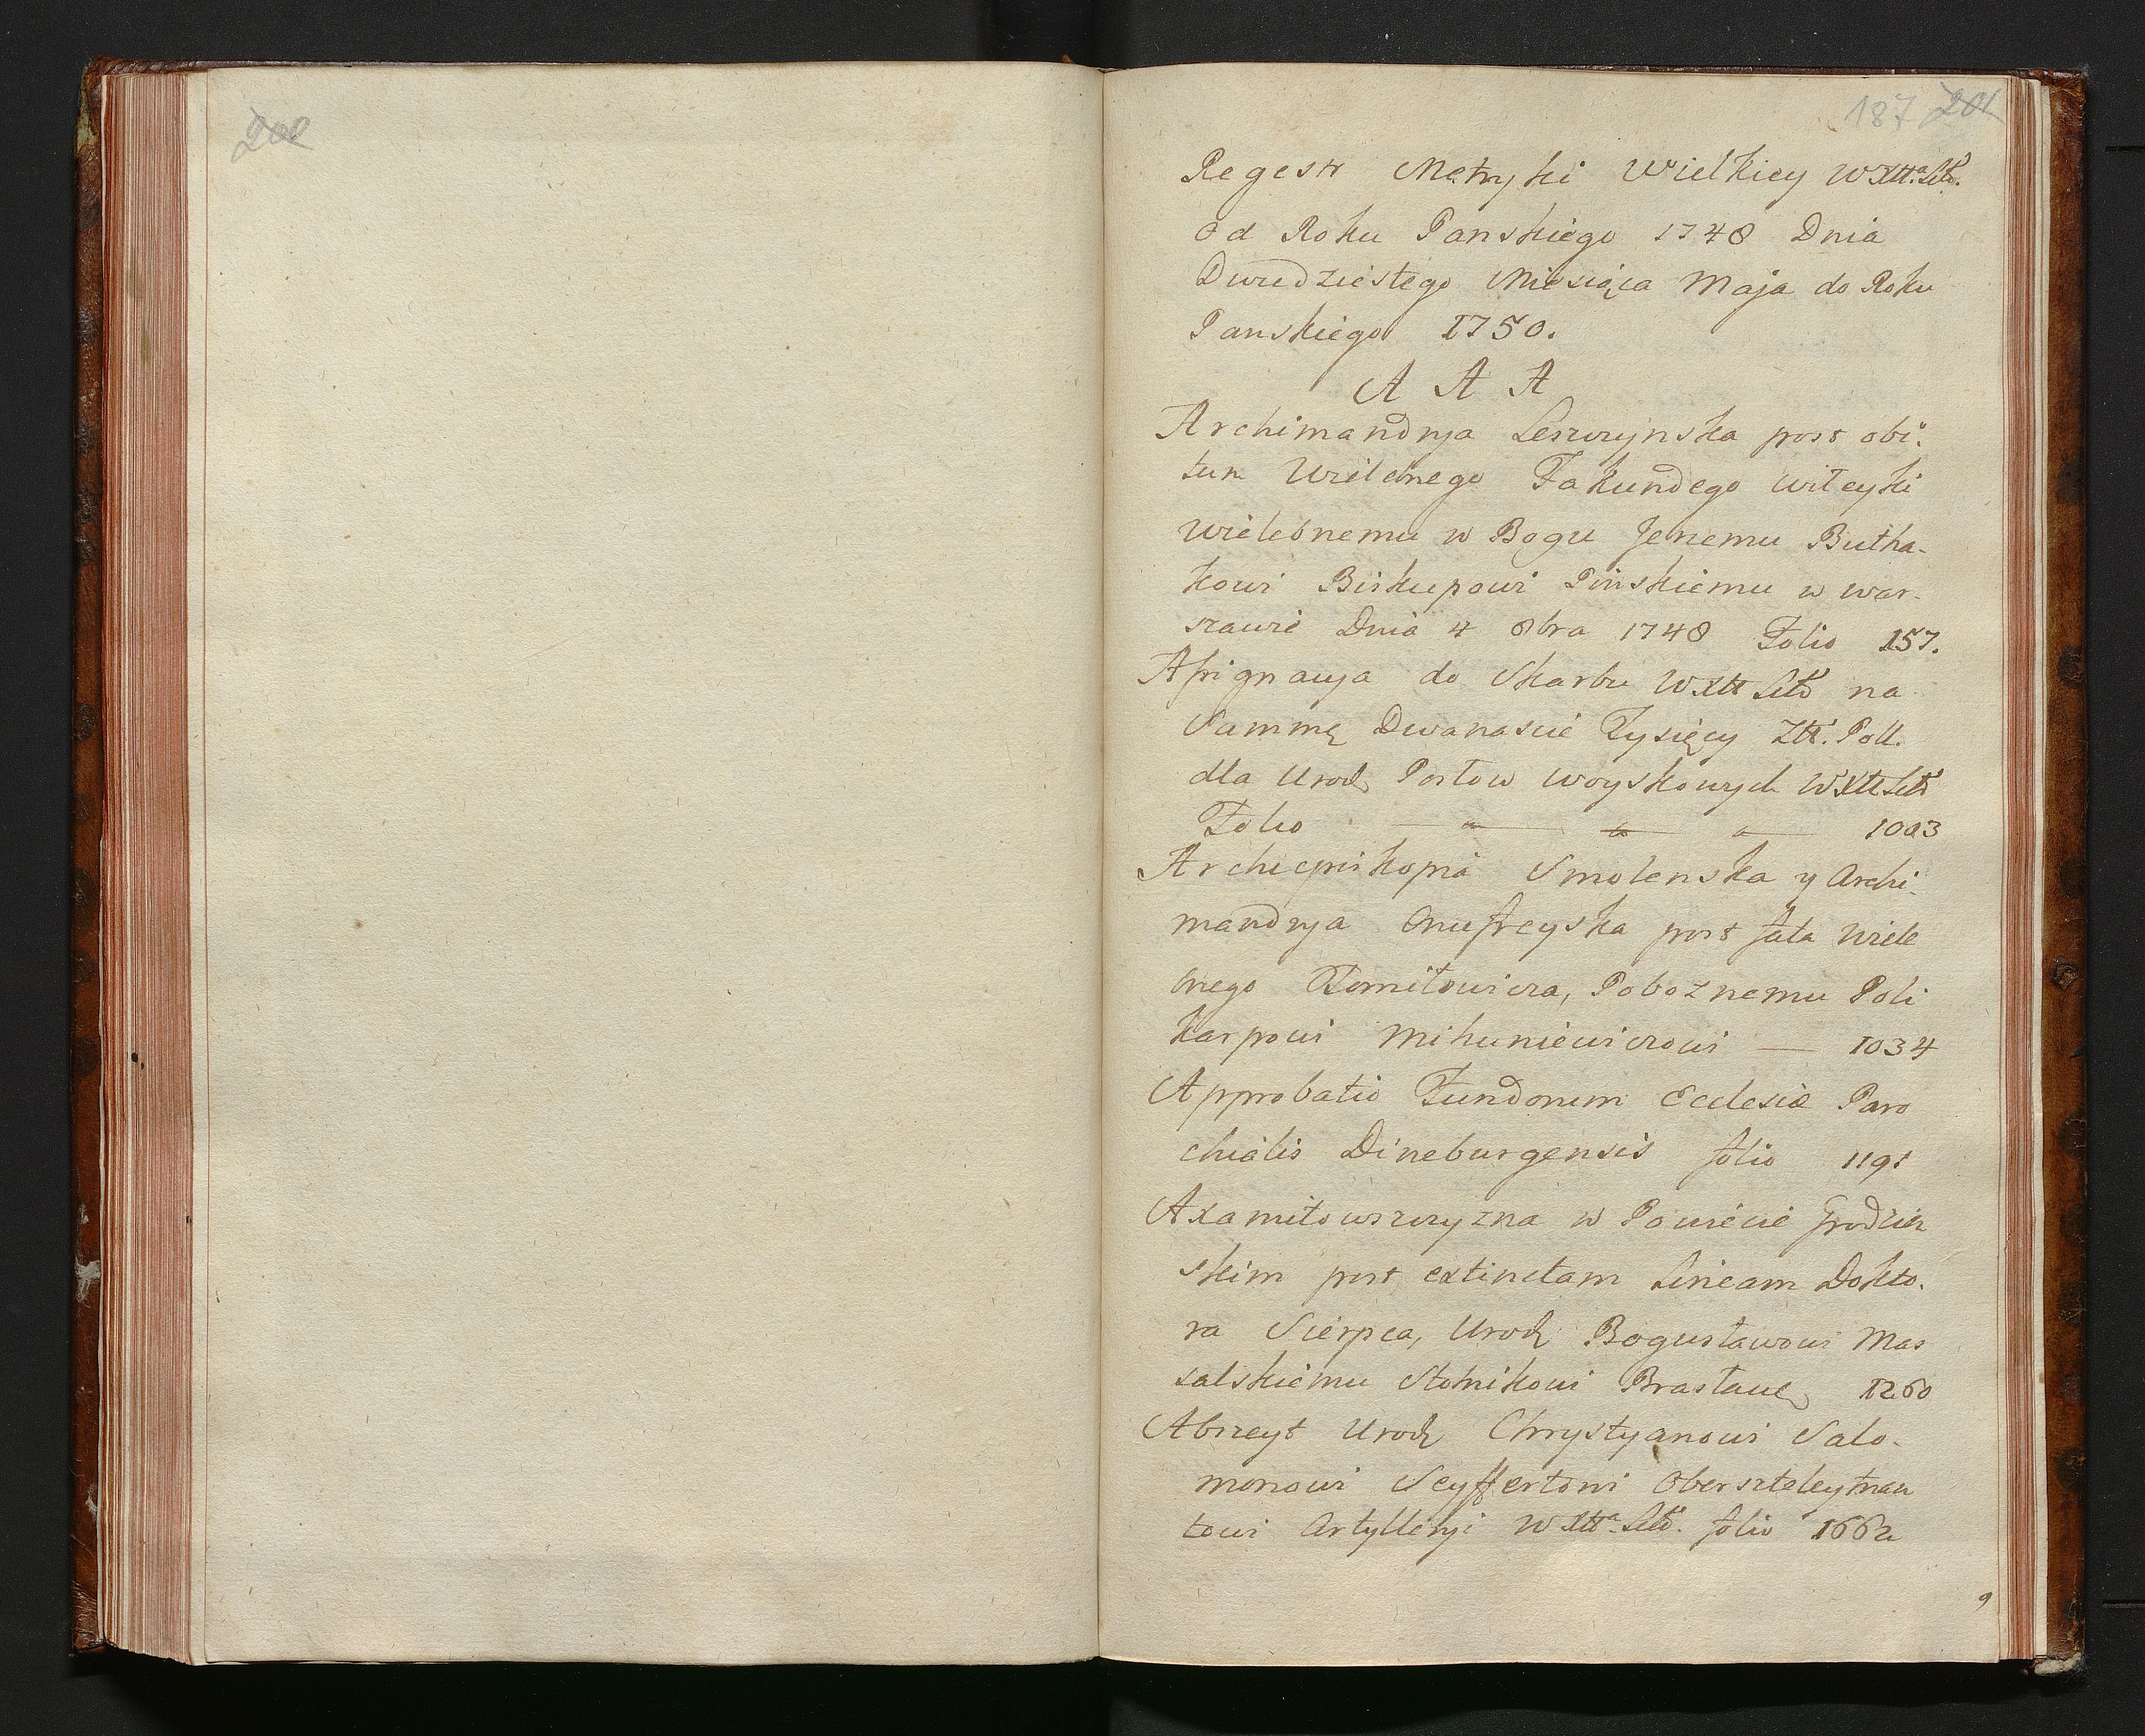 200
187 201
Regestr Metryki Wielkiey WXtt.a Litt.
Od Roku Panskiego 1748 Dnia
Dwudziestego Miesiąca Maja do Roku
Panskiego 1750.
A A A
Archimandrya Leszczynska post obi-
tum Wielebnego Fakundego Witeyki
wielebnemu w Bogu Jerzemu Bułha-
kowi Biskupowi Pinskiemu w War-
szawie Dnia 4 8bra 1748 Folio 157.
Assignacya do Skarbu WXtt Litt na
Summę Dwanascie Tysięcy Ztt. Poll.
dla Urodz Posłow woyskowych WXtt Litt
Folio — a — a — a — 1003
Archiepiskopia Smolenska y Archi-
mandrya Onufreyska post fata Wiele
bnego Tomiłowicza, Poboznemu Poli
karpowi Mihuniewiczowi — 1034
Approbatio Fundorum Ecclesiæ Paro
chialis Dineburgensis folio 1191
Axamitowszczyzna w Powiecie Grodzień
skim post extinctam Lineam Dokto-
ra Sierpca, Urodz Bogusławowi Mas
salskiemu Stolnikowi Brasławs 1260
Abszeyt Urodz Chrystyanowi Salo-
monowi Seyffertowi Oberszteleytnan
towi Artylleryi WXtt.a Litt. folio 1662